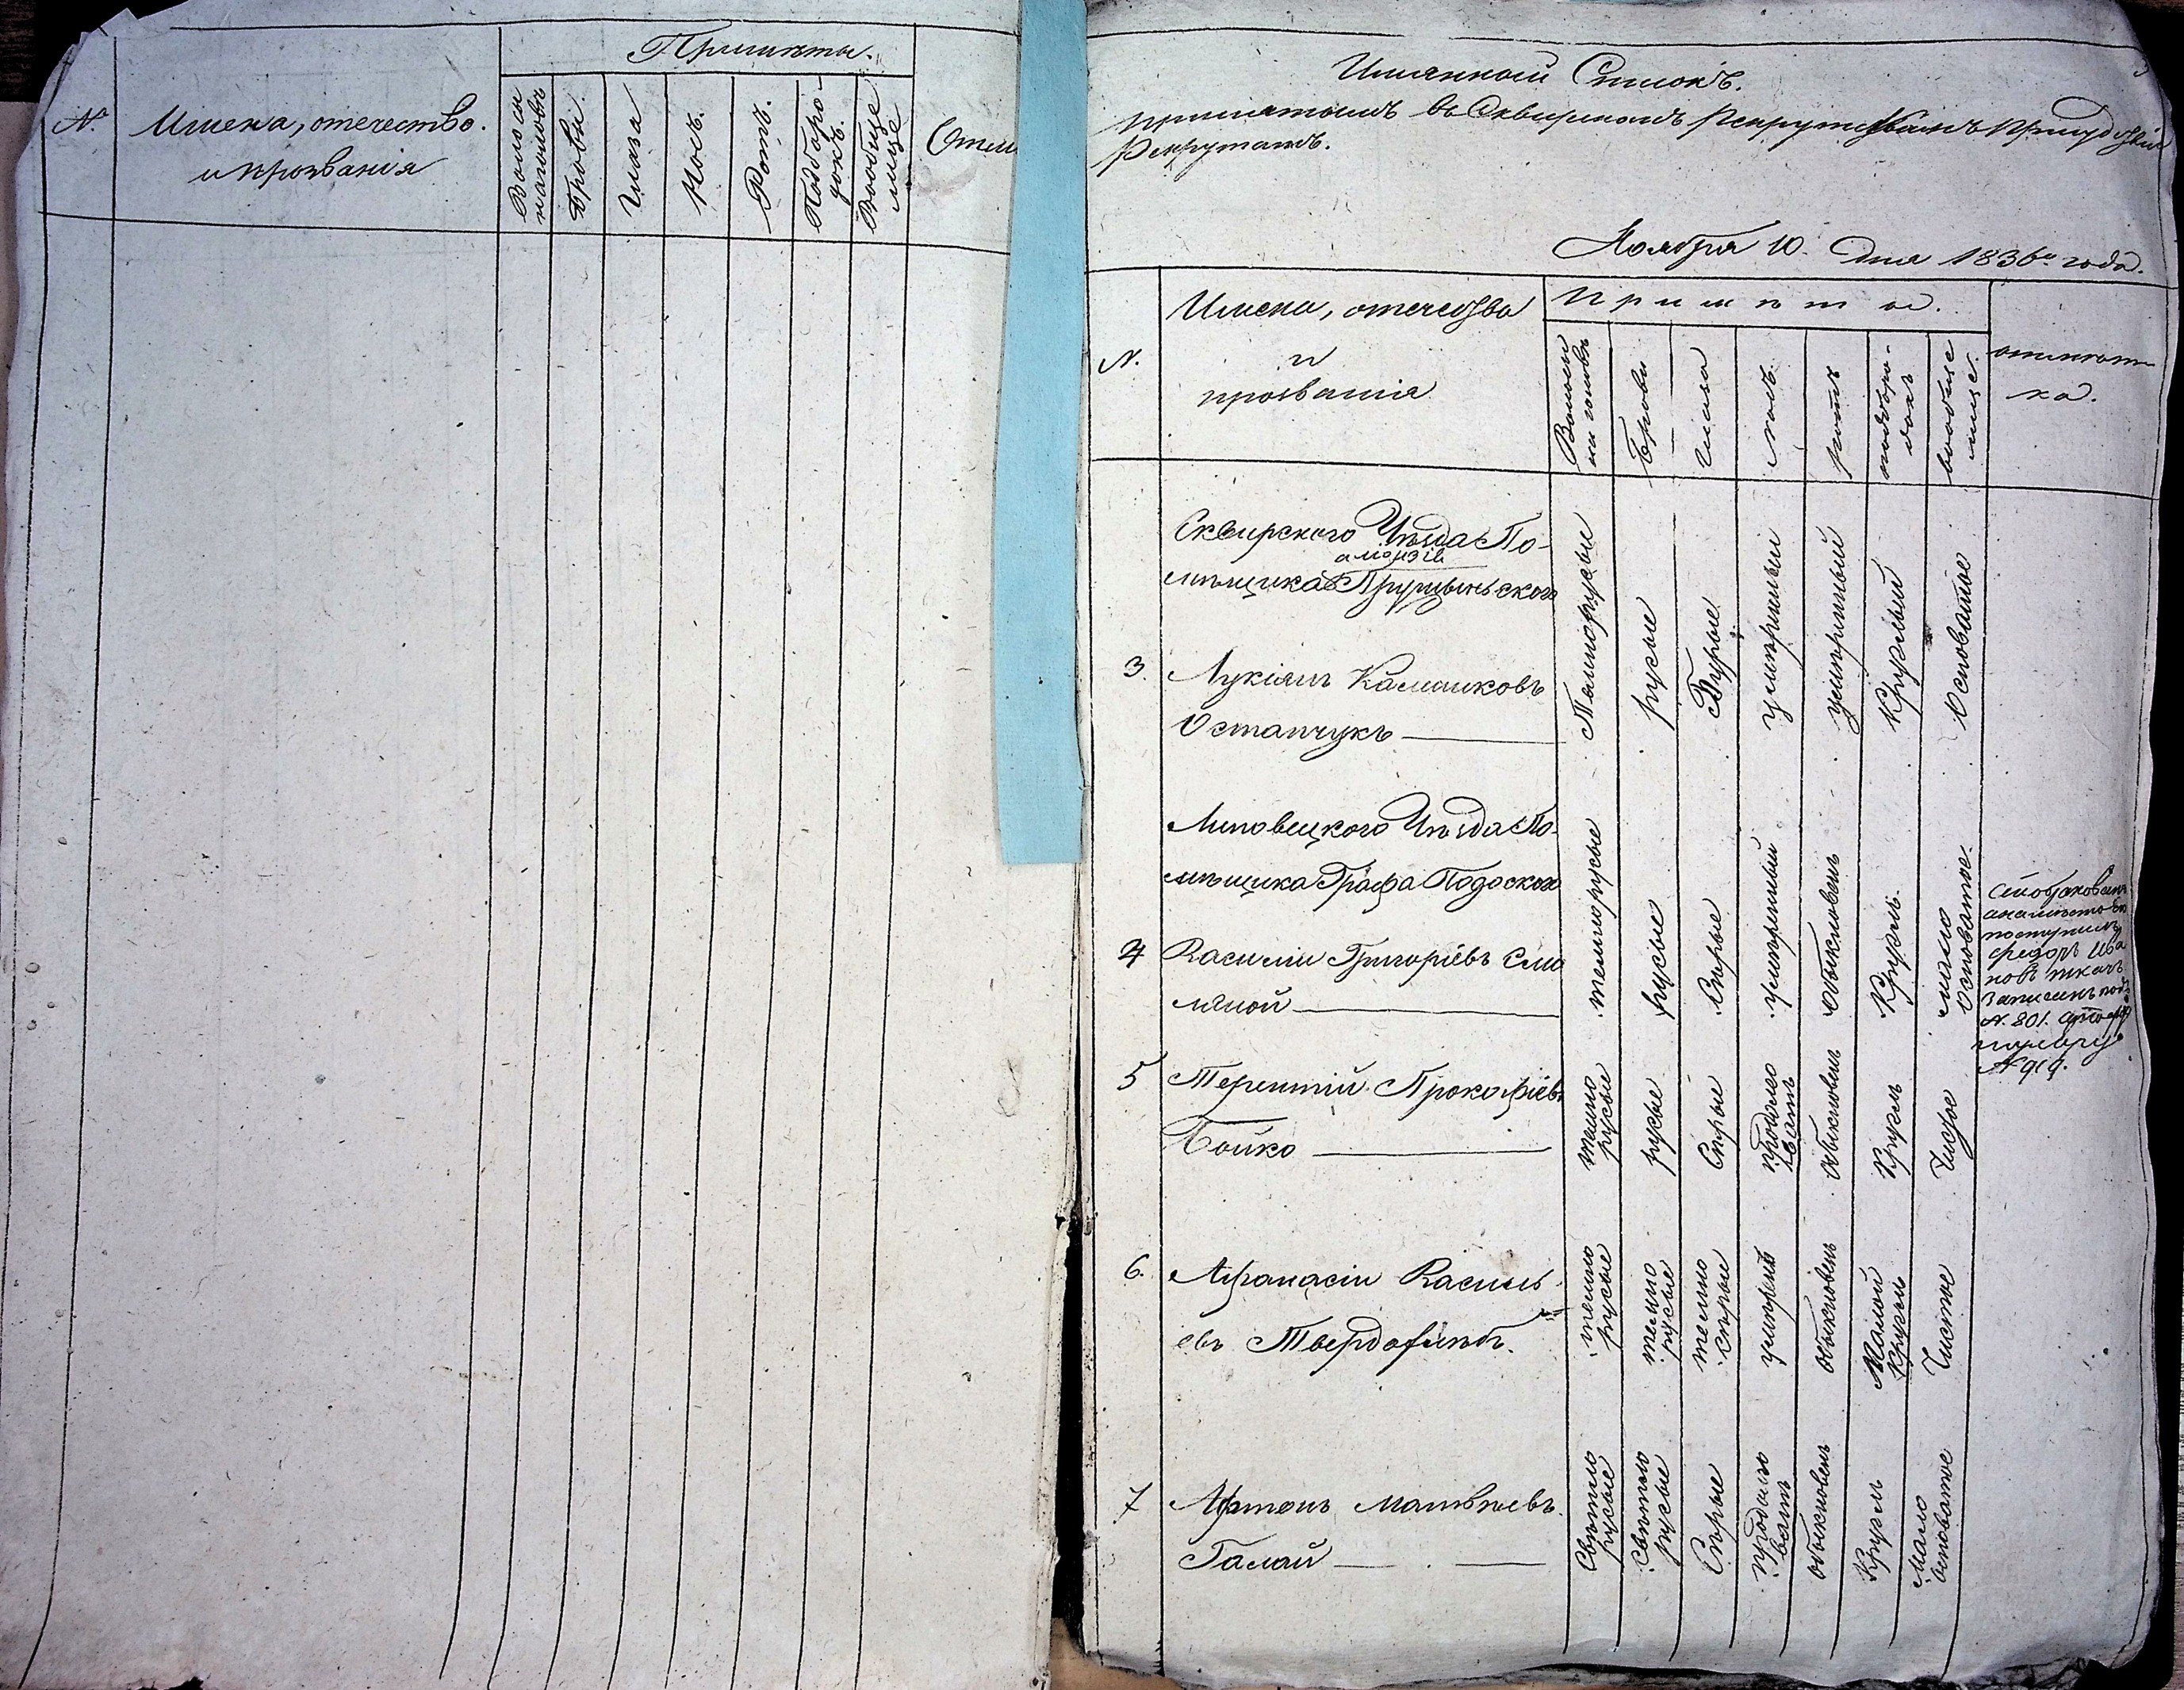 №
Имена, отечество.
и прозванія
Примѣты.
Волосы
на головѣ
Брови.
Глаза
Носъ.
Ротъ.
Подборо-
докъ.
Вообще
лице
Имянной Списокъ.
принятымъ въ Сквирскомъ Рекрутскомъ
Рекрутамъ.
Ноября 10. Дня 1836го года.
N.
Имена, отечества
и
прозванія
Примѣты.
Волосы
на головѣ
Брови
Глаза
носъ.
ротъ
подборо-
докъ
вообще
лице.
отмѣт-
ка.
Сквирского Уѣзда По-
алоизія
мѣщика Прушиньского
3. Лукіянъ Калениковъ
Остапчукъ
Темнорусыи
русые
Бурые
умѣрныи
умѣрный
Круглый
Осповатое
Липовецкого Уѣзда По-
мѣщика Графа Подоского
4 Василіи Григоріевъ Смо
ляной
темнорусые
русые
Сѣрые
умѣрныи
обыкновенъ
Круглъ.
мало
осповатое.
анамѣсто его
поступилъ
федоръ Ива
новъ ткачъ
Записанъ подъ
N. 801.
N 919.
5 Терентій Прокофіевъ
Бойко
темно
русые
русые
Сѣрые
продолго
ватъ
обыкновенъ
Круглъ
Чистое
6. Афанасіи Василь
евъ Твердохлѣбъ.
темно
русые
темно
русые
темно
сѣрые
умѣренъ
обыкновенъ
Малой
круглъ
Чистое
7 Антонъ Матвѣевъ.
Галай
Свѣтло
русые
свѣтло
русые
Сѣрые
продолго
ватъ
обыкновенъ
Круглъ
мало
осповатое